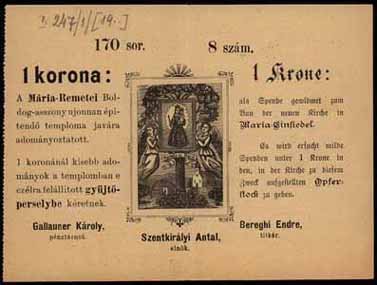 I. 247/1/[19..]
170 sor. 8 szám.
1 korona:
A Mária-Remetei Bol-
dog-asszony ujonnan épi-
tendő temploma javára
adományoztatott.
1 koronánál kisebb ado-
mányok a templomban e
czélra felállitott gyűjtő-
perselybe kéretnek.
Gallauner Károly,
pénztárnok.
Szentkirályi Antal,
elnök.
1 Krone:
als Spende gewidmet zum
Bau der neuen Kirche in
Maria-Einsiedel.
Es wird ersucht milde
Spenden unter 1 Krone in
den, in der Kirche zu diesem
Zweck aufgestellten Opfer-
stock zu geben.
Bereghi Endre,
titkár.